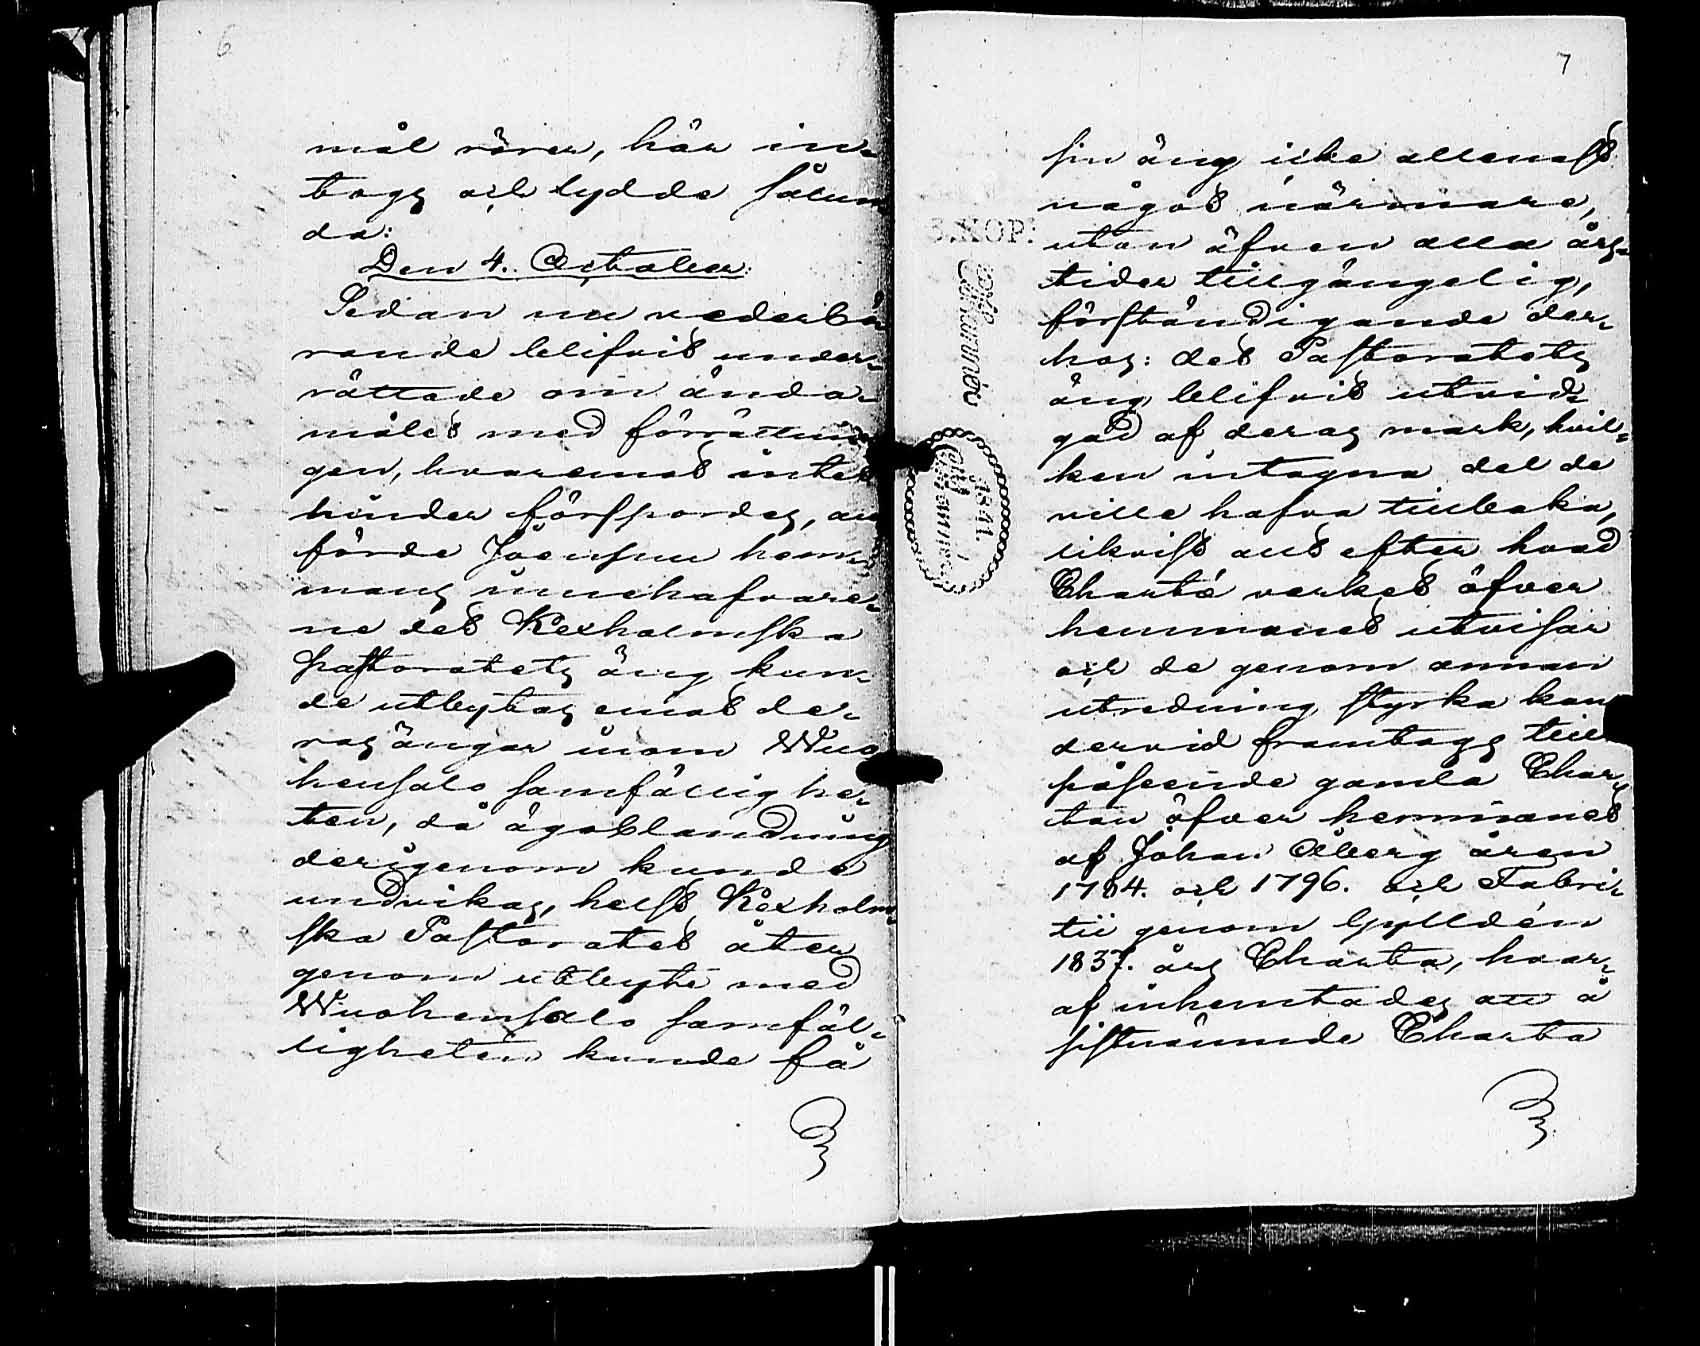 6
mål rörer, här in-
togs och lydde sålun
da:
Den 4. October:
Sedan nu vederbö
rande blifvit under-
rättade om ända-
målet med förrättnin
gen, hvaremot intet
hinder förspordes, an
förde Jöensuu hem-
mans innehafvare-
ne det Kexholmska
pastoratets äng kun-
de utbytas emot de-
ras ängar inom Wuo
hensalo samfällighe-
ten, då ägoblandning
derigenom kunde
undvikas, helst Kexholm-
ska Pastoratet åter
genom utbyte med
Wuohensalo samfäl-
ligheten kunde få
7
sin äng icke allenast
något närmare,
utan äfven alla års-
tider tillgängelig,
förständigande der-
hos: det Pastoratets
äng blifvit utvid-
gad af deras mark, hvil-
ken intagna del de
ville hafva tillbaka,
likvist allt efter hvad
Charte verket öfver
hemmanet utvisar
och de genom annan
utredning styrka kan
dervid framtogs till
påseende gamla Char-
tan öfver hemmanet
af Johan Åberg åren
1784. och 1796. och Fabri-
tii genom Gylldén
1837. års Charta, hvar-
af inhemtades att å
sistnämnde Charta
3. KOP.
1841.